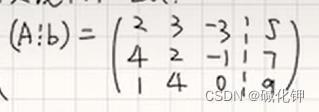 (A⋮b) = ( 2 3 -3 ⋮ 5
4 2 -1 ⋮ 7
1 4 0 ⋮ 9 )
CSDN @碱化钾